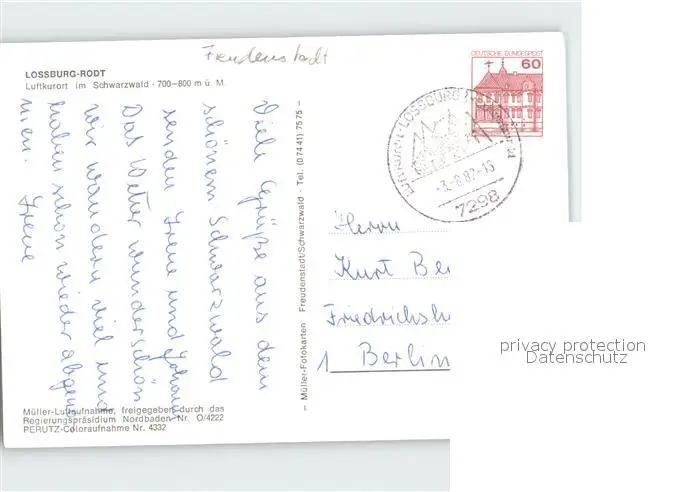 Freudenstadt
LOSSBURG-RODT
Luftkurort im Schwarzwald · 700–800 m ü. M.
Viele Grüße aus dem
schönem Schwarzwald
senden Irene und Johann
Das Wetter wunderschön
wir wandern viel und
haben schon wieder abgenom
men. Irene
Müller-Luftaufnahme, freigegeben durch das
Regierungspräsidium Nordbaden Nr. O/4222
PERUTZ-Coloraufnahme Nr. 4332
– Müller-Fotokarten Freudenstadt/Schwarzwald - Tel. (07441) 7575 –
DEUTSCHE BUNDESPOST
60
LOSSBURG
-3.-8.82-16
7298
Herrn
Kurt Ber
Friedrichsh
1 Berlin
privacy protection
Datenschutz